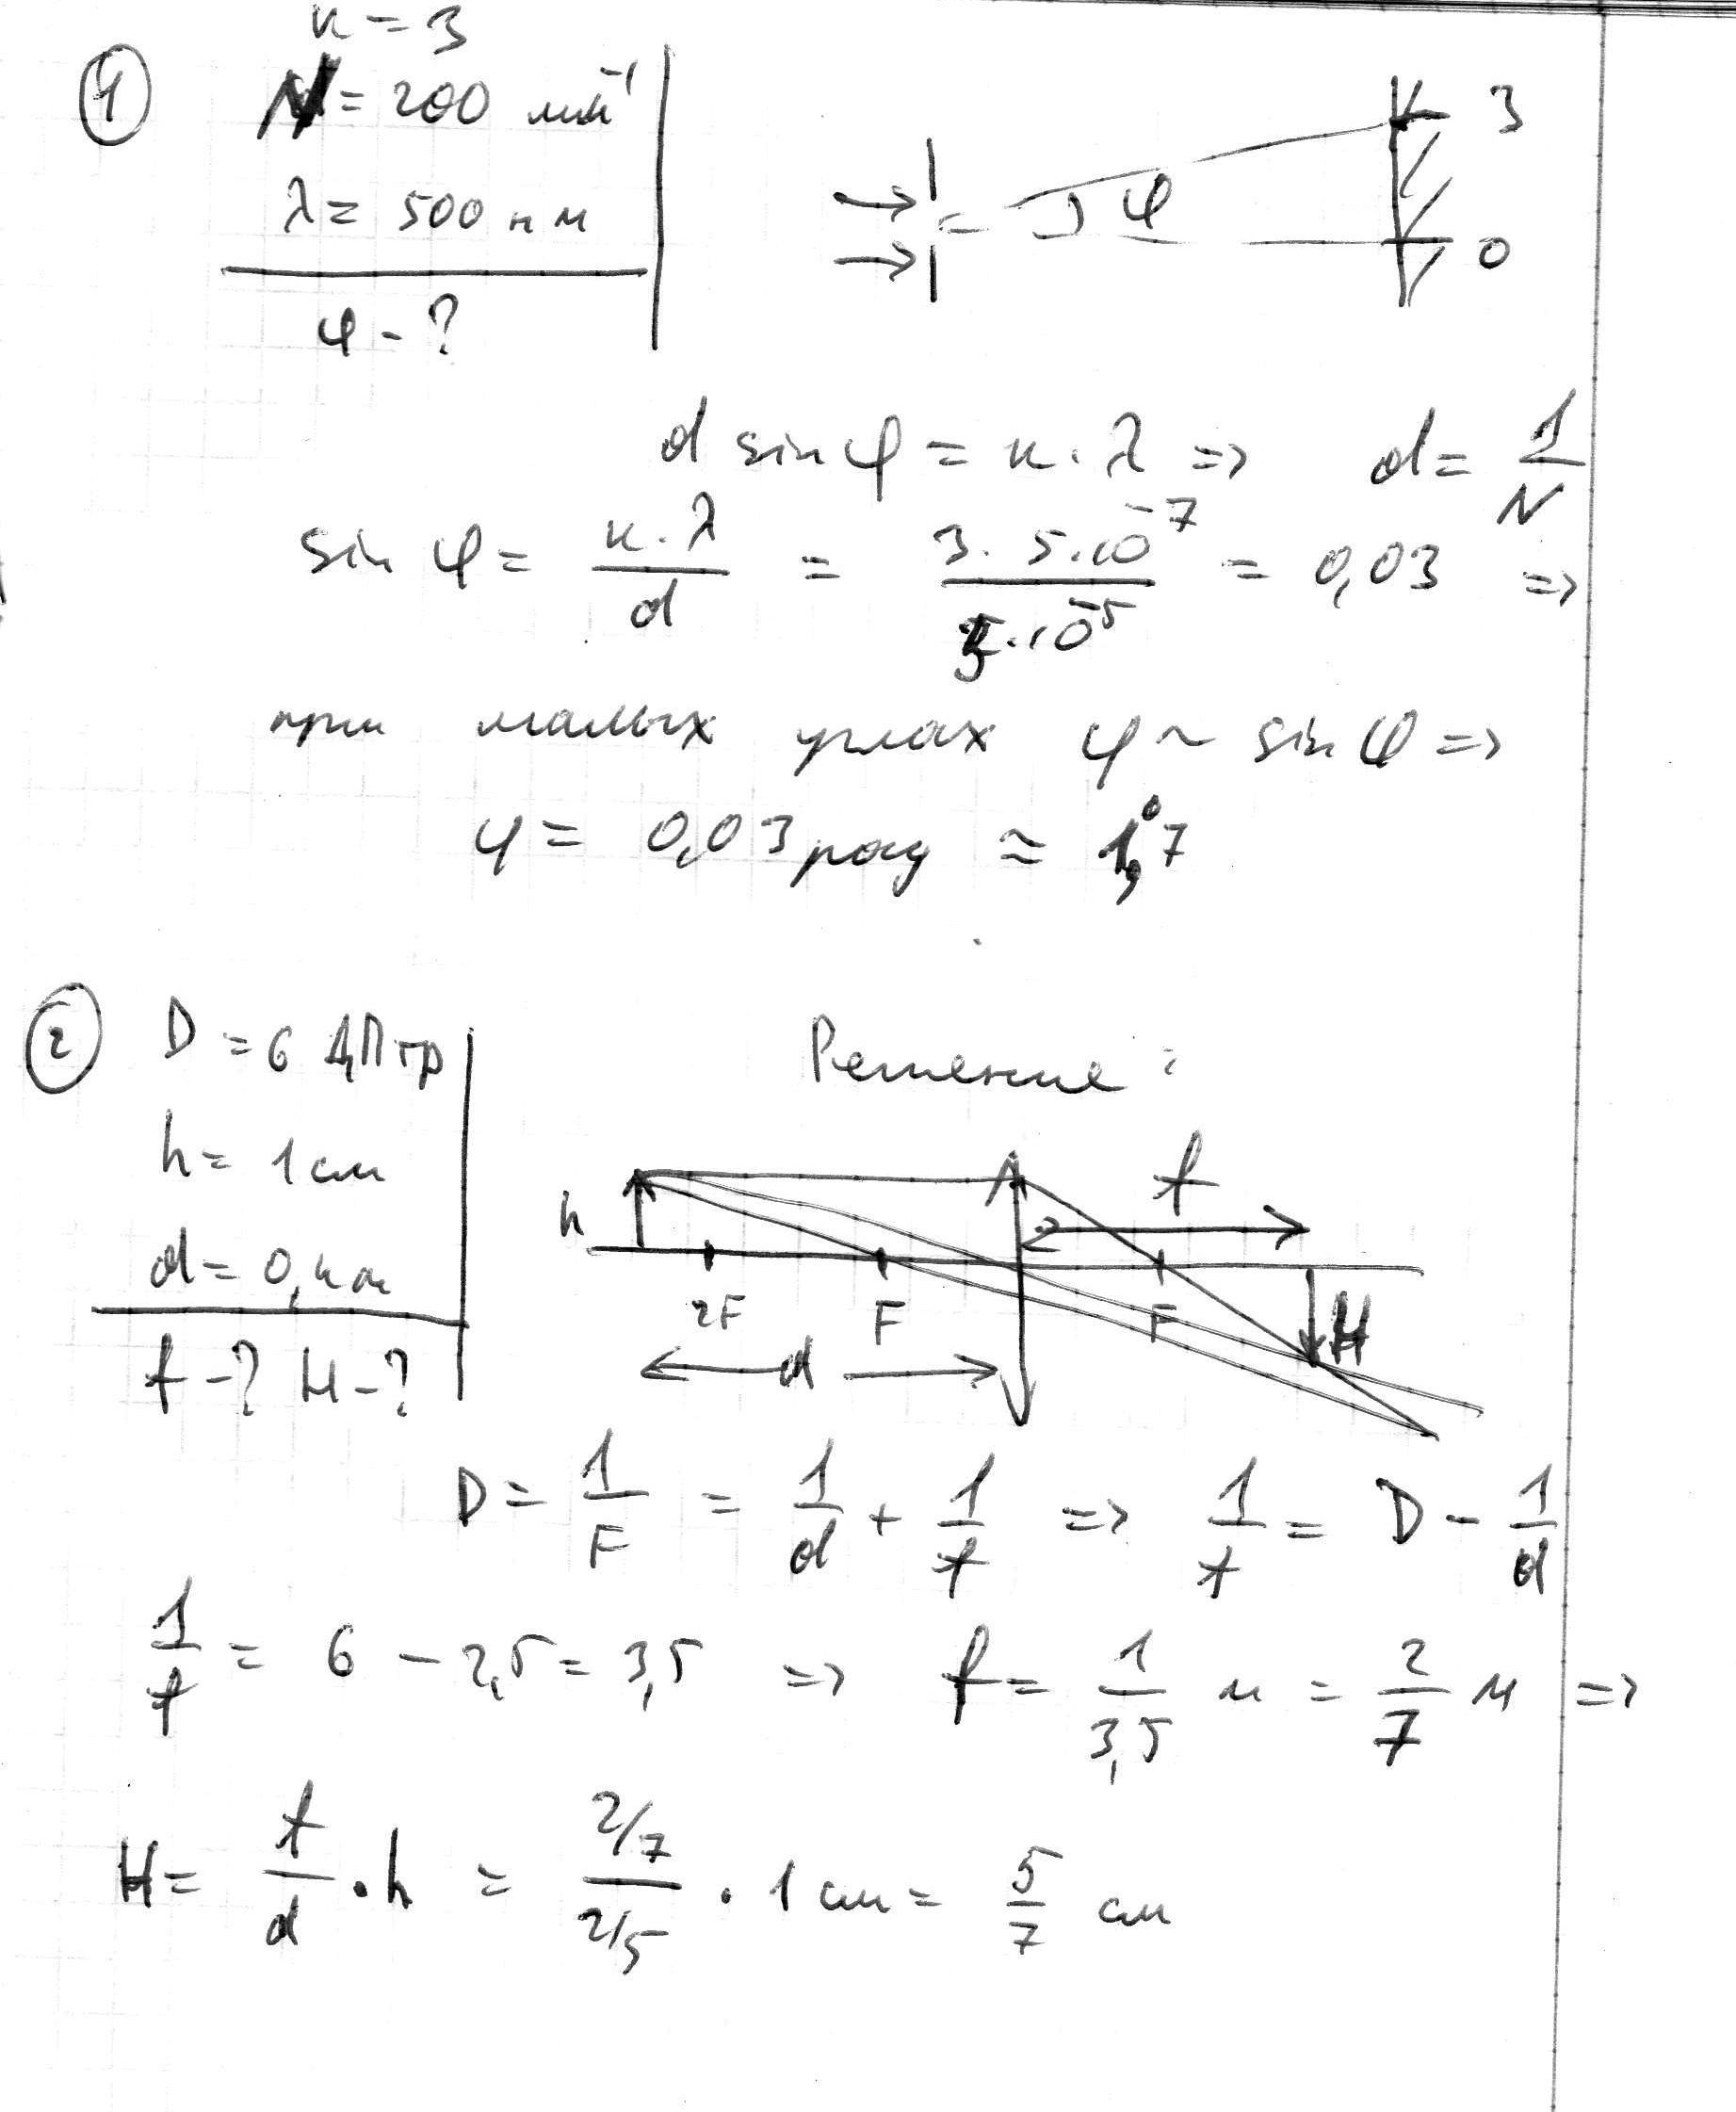 к = 3
① N = 200 мм⁻¹
λ = 500 нм
φ - ?
3
φ
0
d sin φ = к · λ => d = 1/N
sin φ = к · λ / d = 3 · 5 · 10⁻⁷ / 5 · 10⁻⁵ = 0,03 =>
при малых углах φ ~ sin φ =>
φ = 0,03 рад ≈ 1,°7
② D = 6 дптр
h = 1 см
d = 0,4 м
f - ? H - ?
Решение :
f
h
2F F F H
d
D = 1/F = 1/d + 1/f => 1/f = D - 1/d
1/f = 6 - 2,5 = 3,5 => f = 1/3,5 м = 2/7 м =>
H = f/d · h = 2/7 / 2/5 · 1 см = 5/7 см